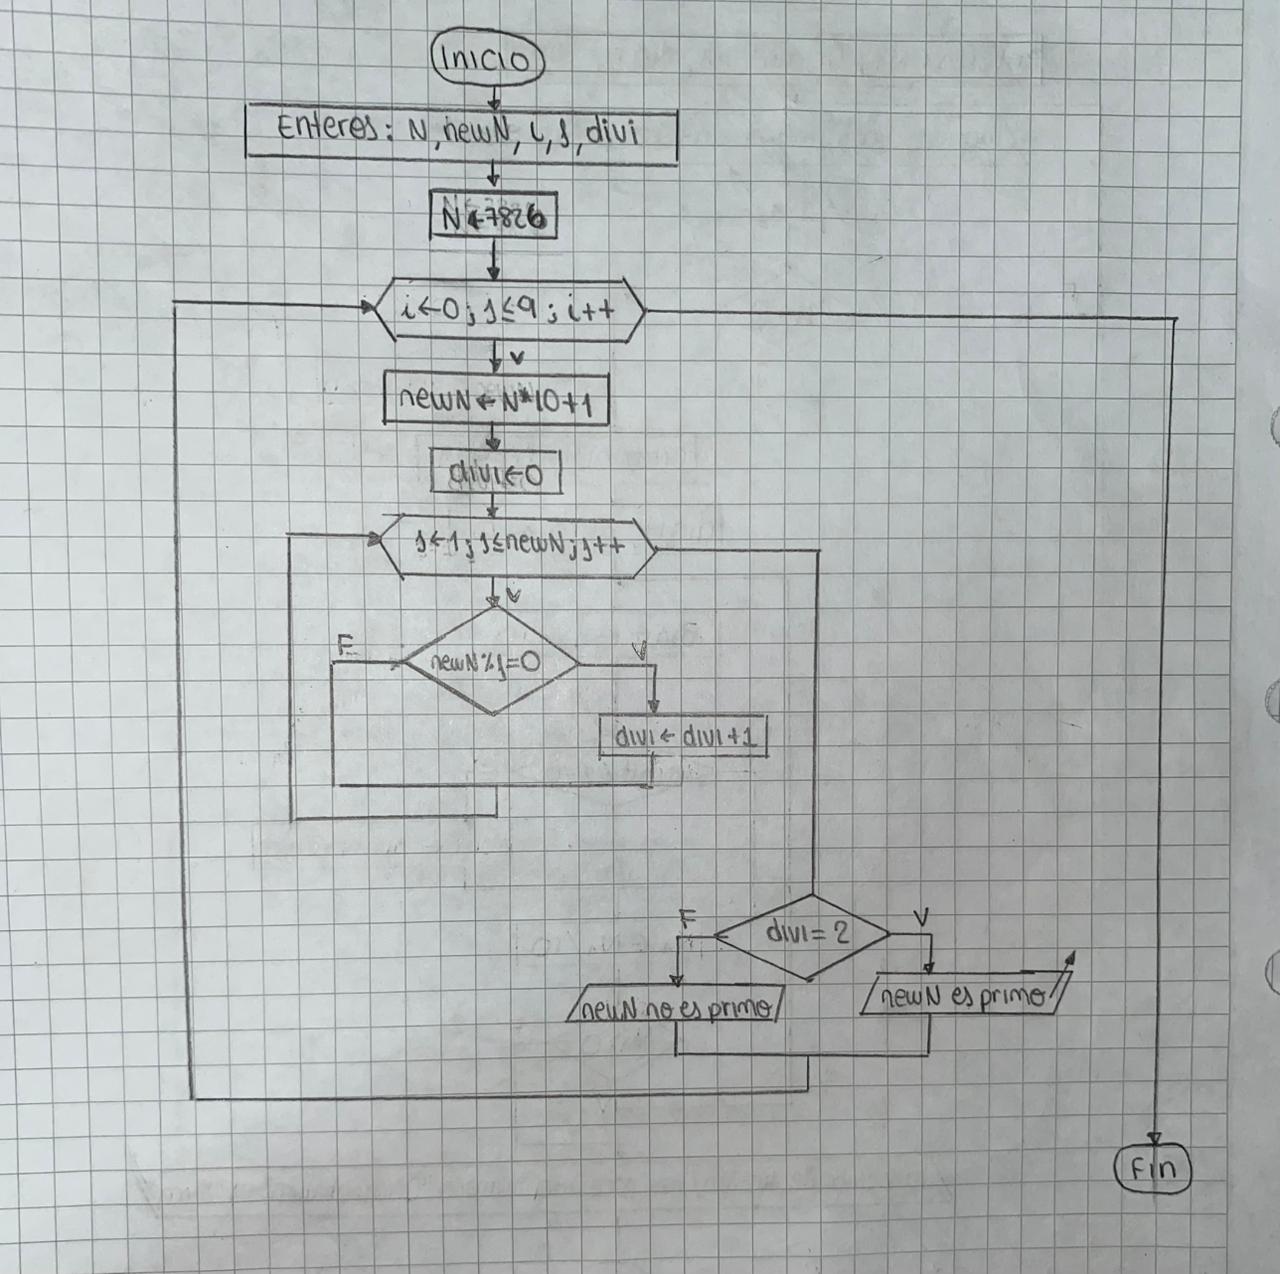 Inicio
Enteros: N, newN, i, j, divi
N←7826
i←0; j≤9; i++
V
newN←N*10+1
divi←0
j←1; j≤newN; j++
V
F
newN%j=0
V
divi←divi+1
F
divi=2
V
newN no es primo
newN es primo
Fin